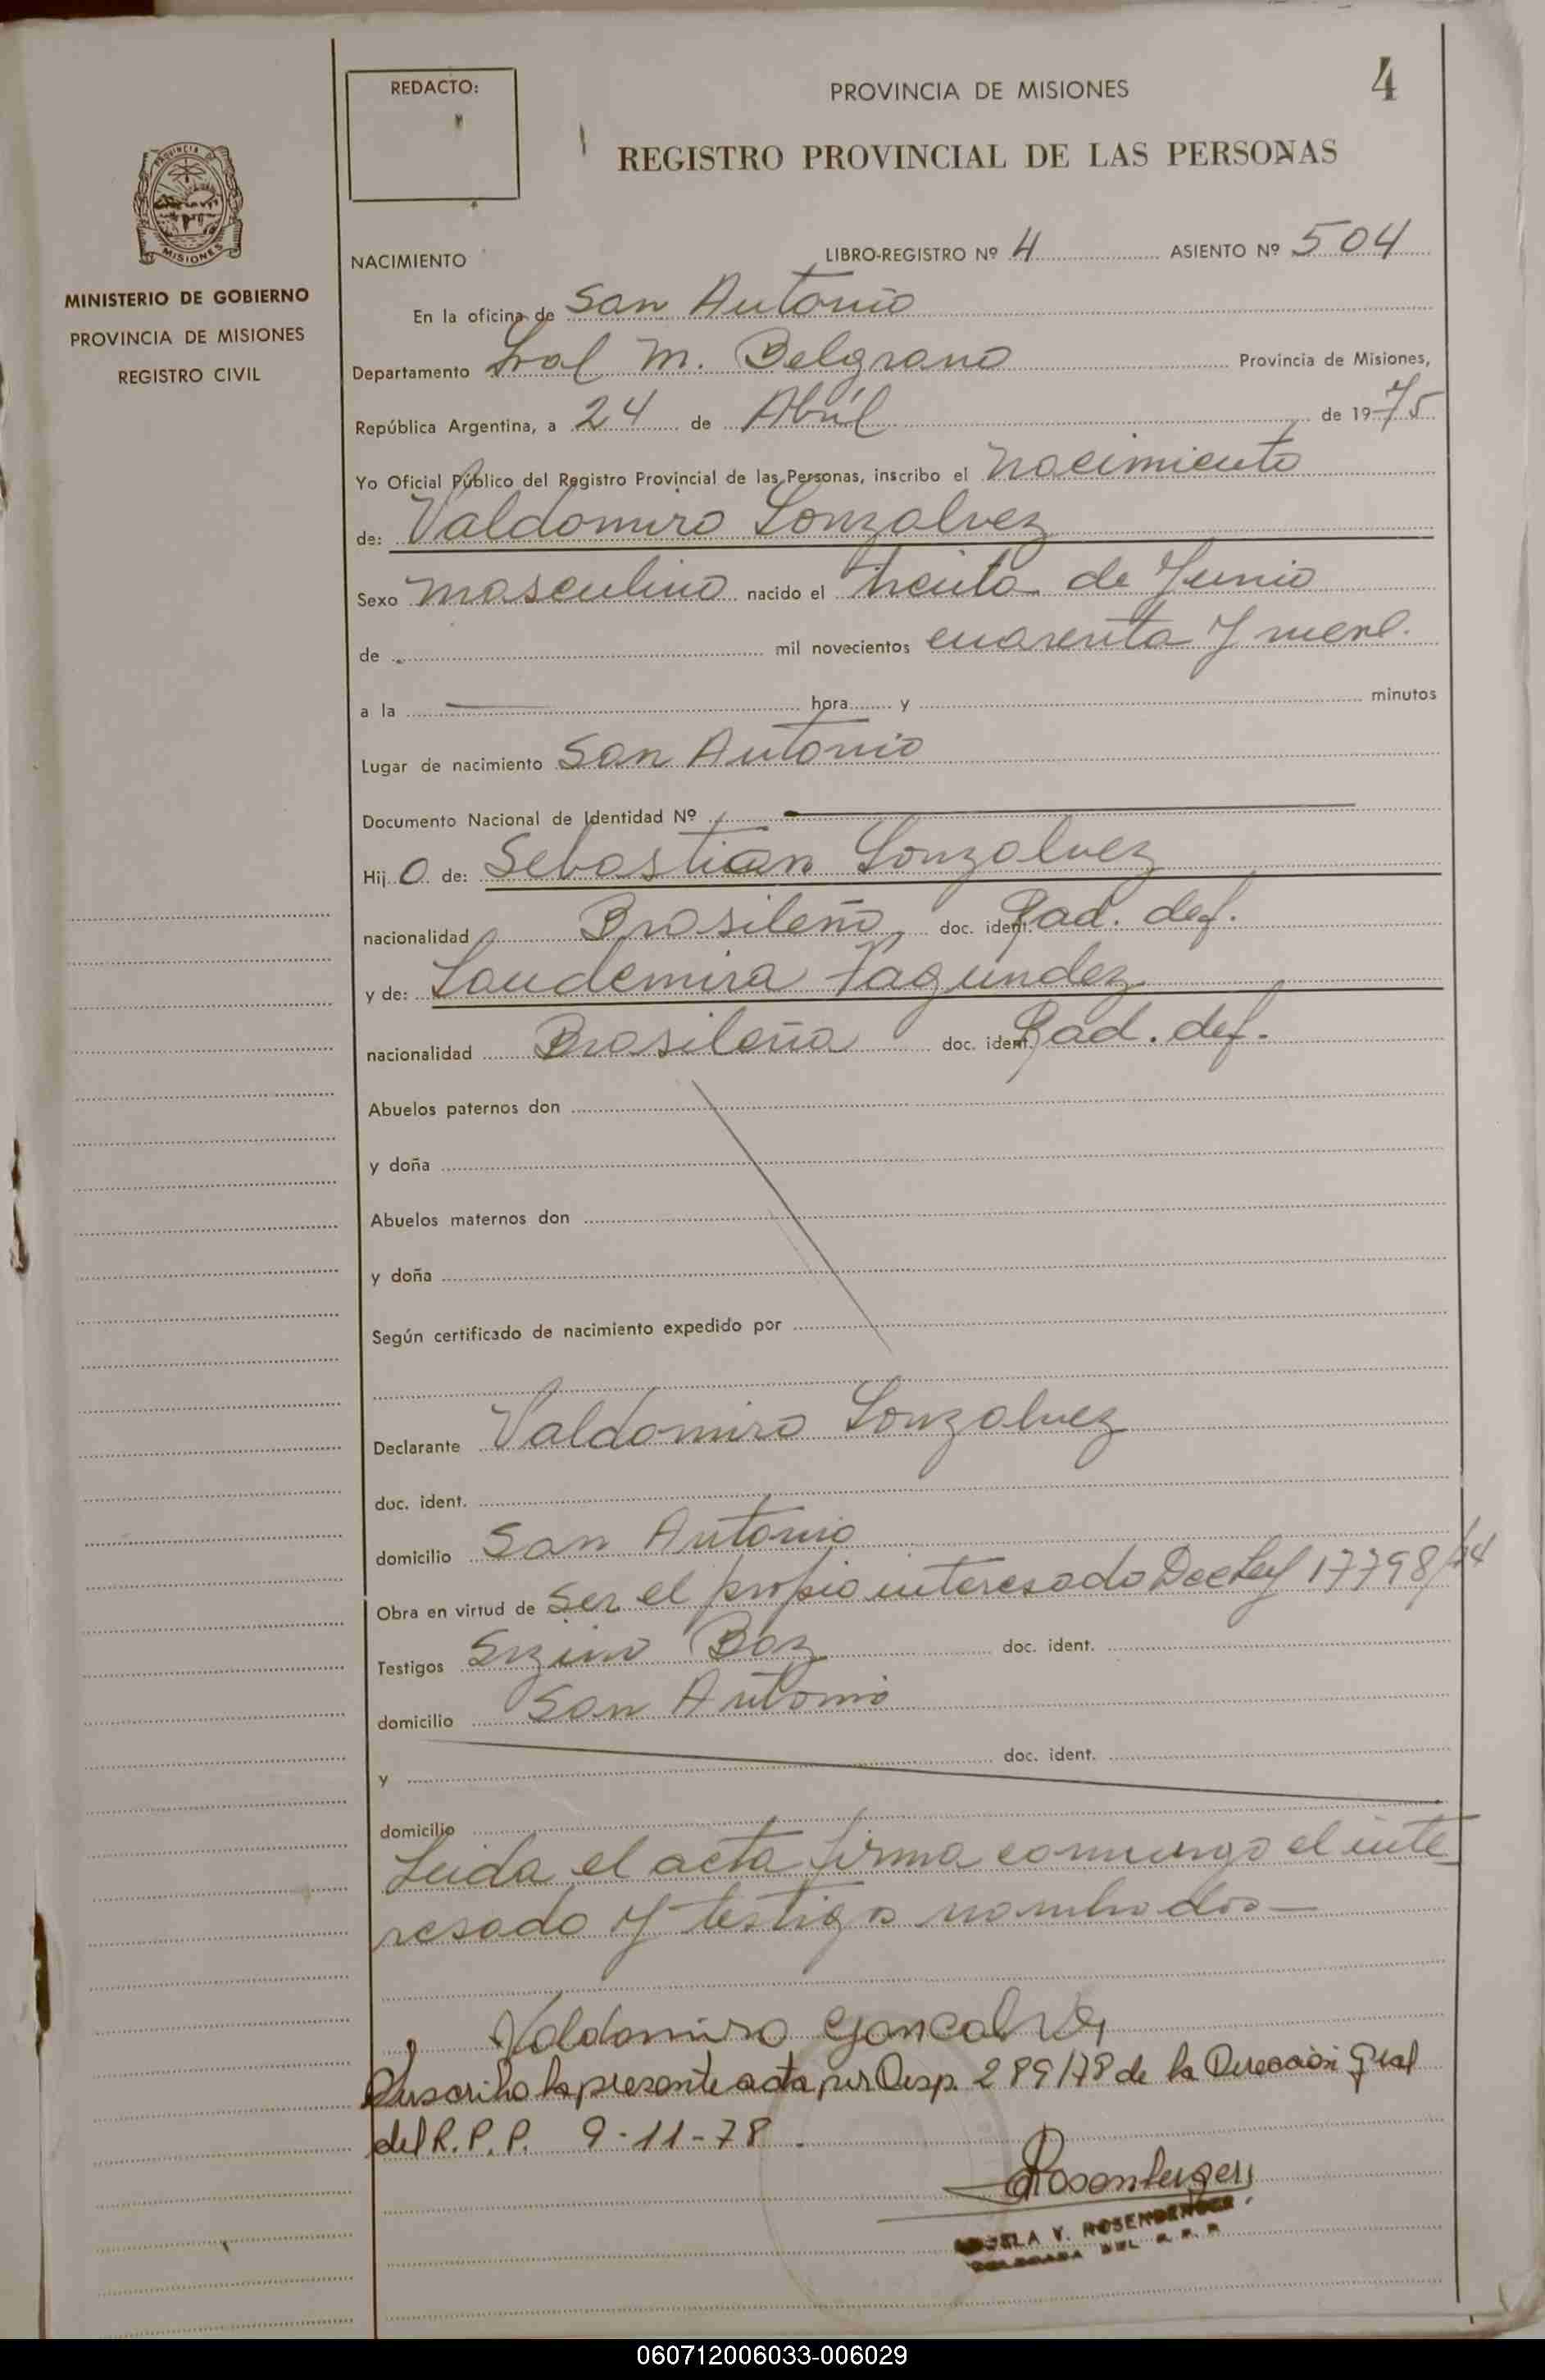 4
REDACTO:
PROVINCIA DE MISIONES
REGISTRO PROVINCIAL DE LAS PERSONAS
PROVINCIA DE
MISIONES
MINISTERIO DE GOBIERNO
PROVINCIA DE MISIONES
REGISTRO CIVIL
NACIMIENTO LIBRO-REGISTRO Nº 4 ASIENTO Nº 504
En la oficina de San Antonio
Departamento Gral M. Belgrano Provincia de Misiones,
República Argentina, a 24 de Abril de 1975
Yo Oficial Público del Registro Provincial de las Personas, inscribo el nacimiento
de: Valdomiro Gonzalvez
Sexo masculino nacido el treinta de Junio
de mil novecientos cuarenta y nueve.
a la hora y minutos
Lugar de nacimiento San Antonio
Documento Nacional de Identidad Nº
Hij o de: Sebastian Gonzalvez
nacionalidad Brasileño, doc. ident. Rad. def.
y de: Laudemira Fagundez
nacionalidad Brasileña doc. ident. Rad. def.
Abuelos paternos don
y doña
Abuelos maternos don
y doña
Según certificado de nacimiento expedido por
Declarante Valdomiro Gonzalvez
doc. ident.
domicilio San Antonio
Obra en virtud de ser el propio interesado Dec Ley 17798/74
Testigos Boz doc. ident.
domicilio San Antonio
y doc. ident.
domicilio
Leida el acta firma conmigo el inte
resado y testigo nombrados—
Valdomiro Goncalves
Suscribo la presente acta, por Disp. 289/78 de la Dirección Gral
del R.P.P. 9-11-78.
Rosenberger
V. ROSENBERGER
DELEGADA DEL R. P. P.
060712006033-006029